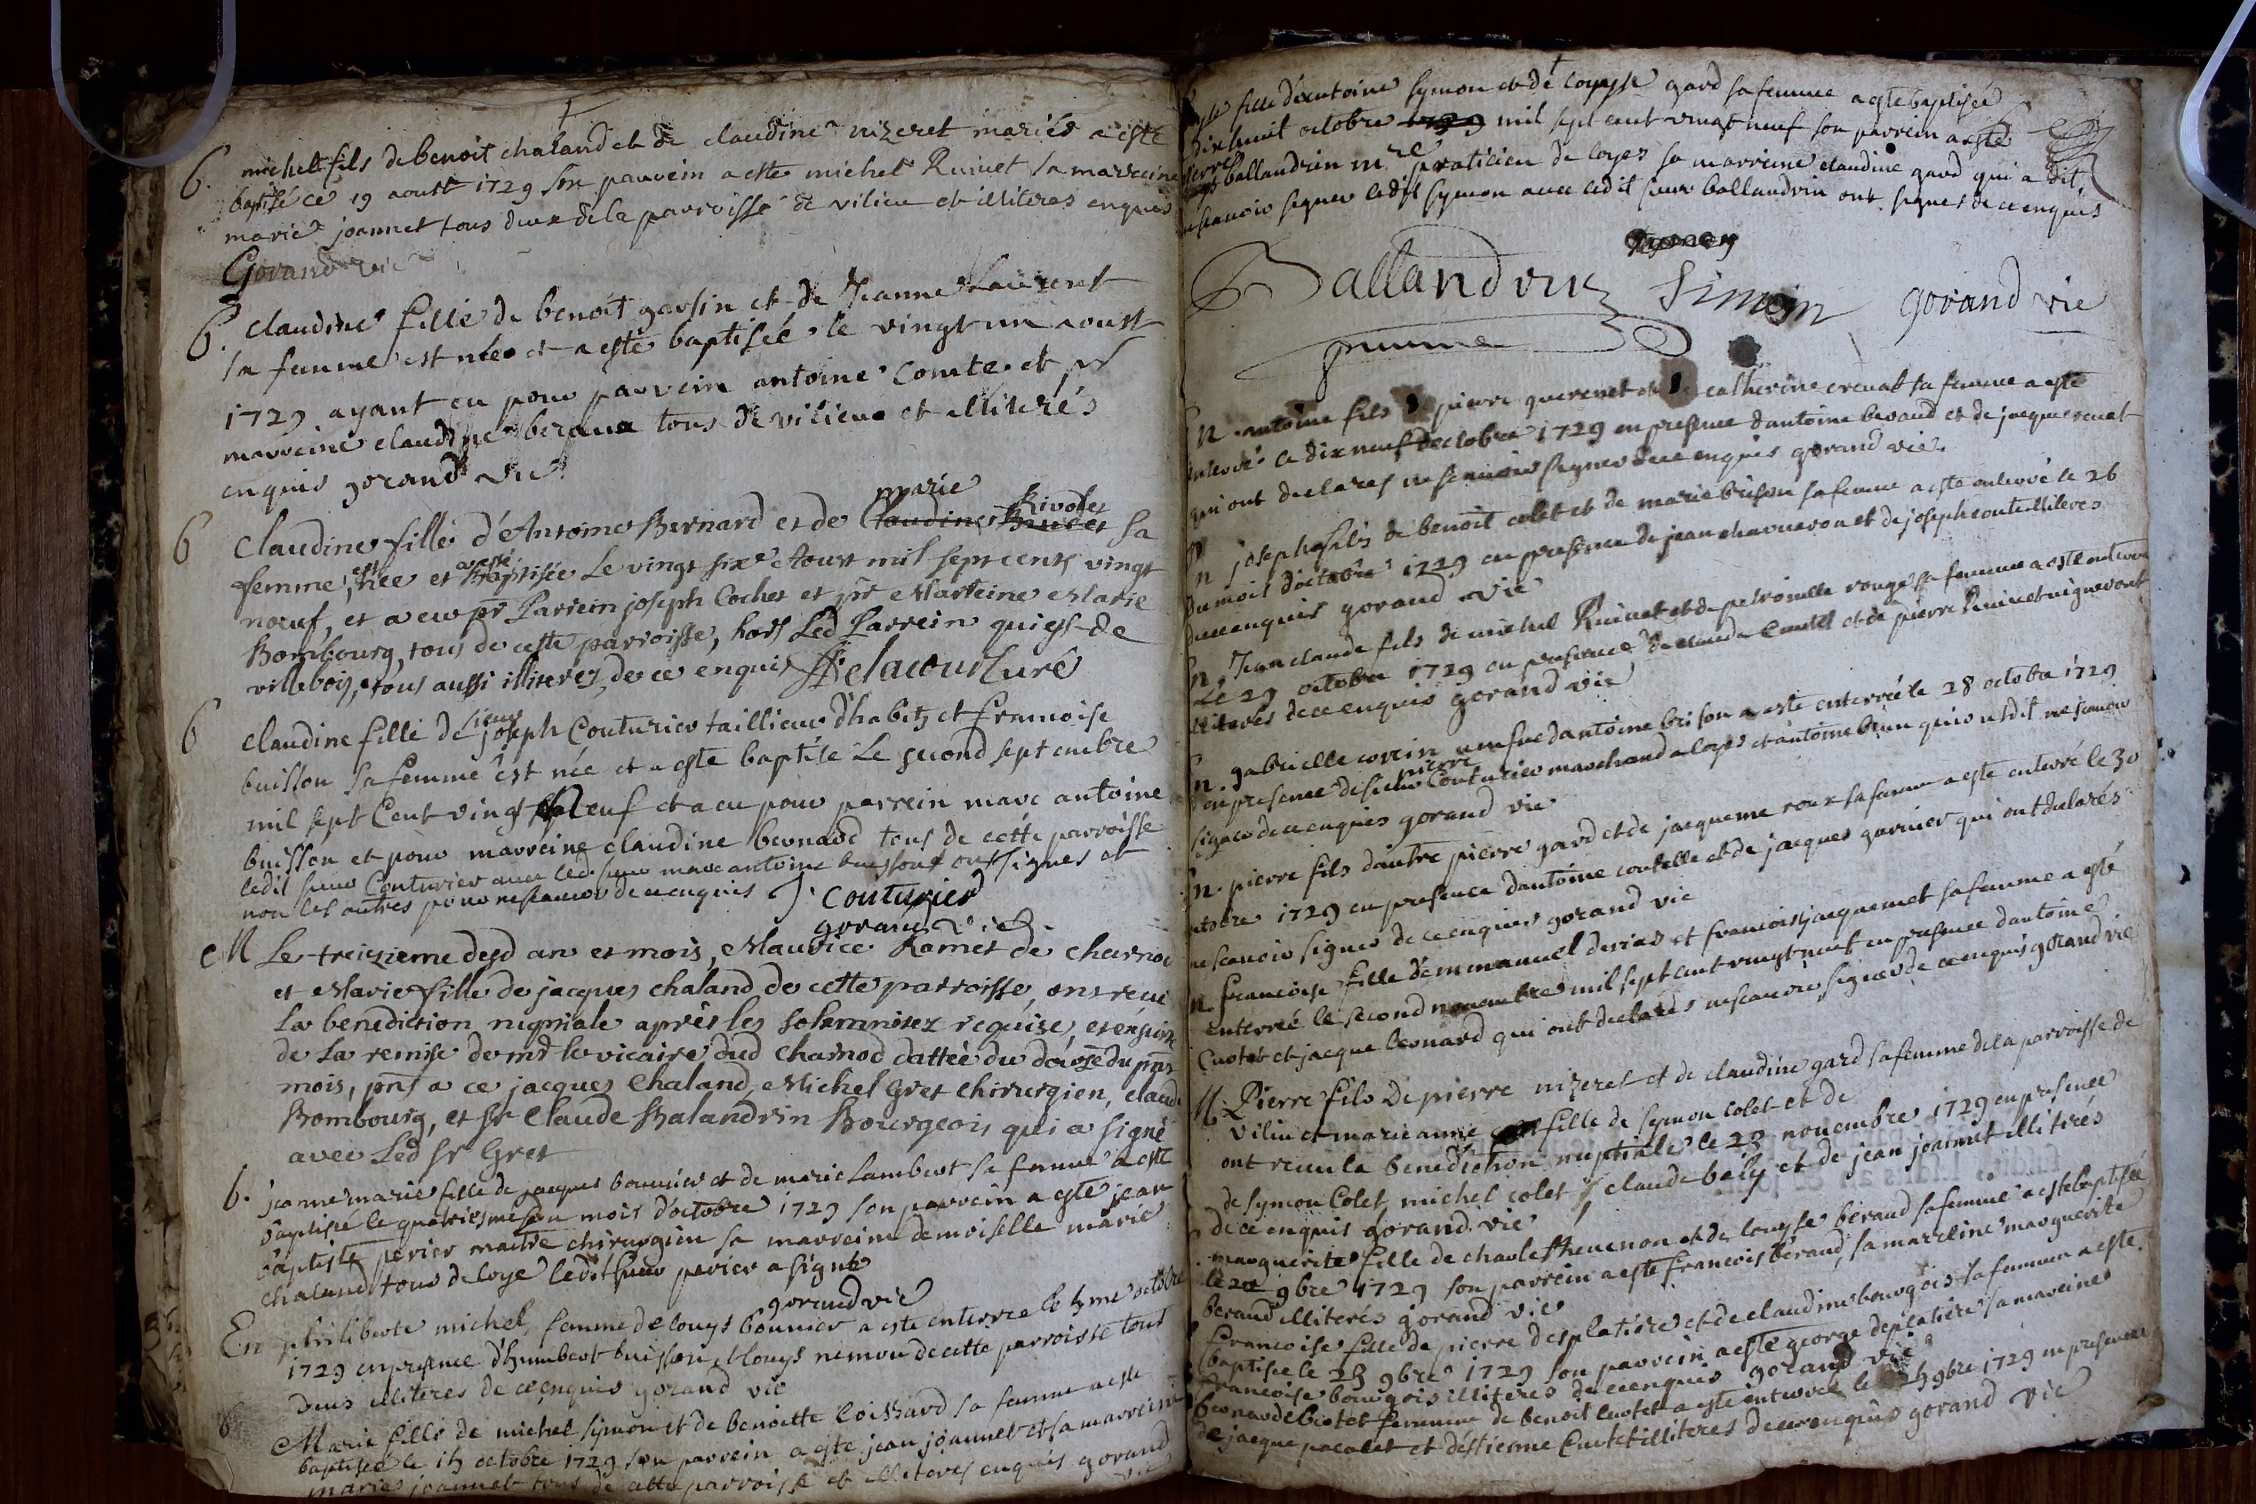 B. michel fils de benoit chaland et de claudine nizeret mariés a esté
baptisé ce 19 aoust 1729 son parrein a este michel Ruivet sa marreine
marie joannet tous deux de la parroisse de vilieu et illiteres enquis
Gorand vic
B. claudine fille de benoit garsin et de Jeanne Laurent
sa femme est née et a esté baptisée le vingt un aoust
1729 ayant eu pour parrein antoine Comte et pr
marreine claudine beraud tous de vilieu et illiterés
enquis gorand vic
marie Rivolet
B Claudine fille d'Antoine Bernard et de Claudine sa
est a esté
femme, née et baptisée Le vingt six Aoust mil sept cents vingt
nœuf, et a eu pr Parrein joseph Cochet et pr Marreine Marie
Bombourg, tous de cette parroisse, hors Led Parrein qui est de
villebois, tous aussi illiterez, de ce enquis Delacour Curé
sieur
B claudine fille de joseph Couturier taillieur d'habitz et francoise
buisson sa femme est née et a este baptisée Le second septembre
mil sept Cent vingt Neuf et a eu pour parrein marc antoine
buisson et pour marreine claudine bernard tous de cette parroisse
ledit sieur Couturier avec led. sieur marc antoine buisson ont signes et
non les autres pour ne scavoir de ce enquis J. Couturier
gorand vic
M Le treizieme desd an et mois, Maurice Ramet de Charnod
et Marie fille de jacques chaland de cette parroisse, ont receu
La benediction nuptiale après les solemnitez requise, et ensuitte
de La remise de mr le vicaire dud Charnod dattée du douze du pnt
mois, pnt a ce jacques Chaland, Michel Gret Chirurgien, claude
Bombourg, et sr Claude Balandrin Bourgeois qui a signé
avec Led sr Gret
b. jeanne marie fille de jacques bonnier et de marie Lambert sa femme a esté
baptisée le quatriesme du mois d'octobre 1729 son parrein a este jean
baptiste perier maitre chirurgien sa marreine demoiselle marie
chaland tous de loye ledit sieur perier a signé
gorand vic
En philiberte michel, femme de louys bonnier a este enterrée le octobre
1729 en presence d'humbert buisson et louys nemou de cette parroisse tous
deux illiteres de ce enquis gorand vic
B Marie fille de michel symon et de benoitte loissard sa femme a este
baptisée le 15 octobre 1729 son parrein a este jean joannet et sa marreine
marie joannet tous de cette parroisse et illiteres enquis gorand
vic
fille d'antoine symon et de louyse gard sa femme a este baptisée
dix huit octobre 1729 mil sept cent vingt neuf son parrein a esté
pierre ballandrin mre praticien de loyes sa marreine claudine gard qui a dit
ne scavoir signer ledit symon avec ledit sieur ballandrin ont signes de ce enquis
Symon
Ballandrin Simon gorand vic
En antoine fils de pierre querenet et de catherine crenat sa femme a esté
enterré ce dix neuf d'octobre 1729 en presence d'antoine beraud et de jacque revet
qui ont declares ne scavoir signer de ce enquis gorand vic.
En joseph fils de benoit colet et de marie brison sa femme a este enterré le 26
du mois d'octobre 1729 en presence de jean charveron et de joseph conte illiteres
de ce enquis gorand vic
En Jean claude fils de michel Ruivet et de petronille rouge sa femme a este enterré
Le 29 octobre 1729 en presence de claude et de pierre Ruivet
illiterés de ce enquis gorand vic
En gabrielle corein veufve d'antoine brison a este enterrée le 28 octobre 1729
pierre
en presence de sieur Couturier marchand a loyes et antoine brun qui ont dit ne scavoir
signer de ce enquis gorand vic
En pierre fils d'autre pierre gard et de jacqueme roux sa femme a este enterré le 30
octobre 1729 en presence d'antoine contelle et de jacques garnier qui ont declarés
ne scavoir signer de ce enquis gorand vic
En francoise fille d'emmanuel derias et francoise jacquemet sa femme a esté
enterrée le second novembre mil sept cent vingt neuf en presence d'antoine
Cuotet et jacque bernard qui ont declarés ne scavoir signer de ce enquis gorand vic
M. Pierre fils de pierre nizeret et de claudine gard sa femme de la parroisse de
Vilieu et marie anne fille de symon colet et de
ont receu la benediction nuptiale le 23 novembre 1729 en presence
de symon Colet, michel colet claude bely et de jean joannet illiterés
de ce enquis gorand vic
marguerite fille de charle thevenon et de louyse beraud sa femme a este baptisée
le 9bre 1729 son parrein a este francois beraud, sa marreine marguerite
beraud illiterés gorand vic
francoise fille de pierre desplatiere et de claudine bourgois sa femme a este
baptisée le 25 9bre 1729 son parrein a este george deplatiere sa marreine
francoise bourgois illiteres de ce enquis gorand vic
bernarde femme de benoit cuotet a este enterrée le 9bre 1729 en presence
de jacque pacalet et d'estienne Cuotet illiteres de ce enquis gorand vic